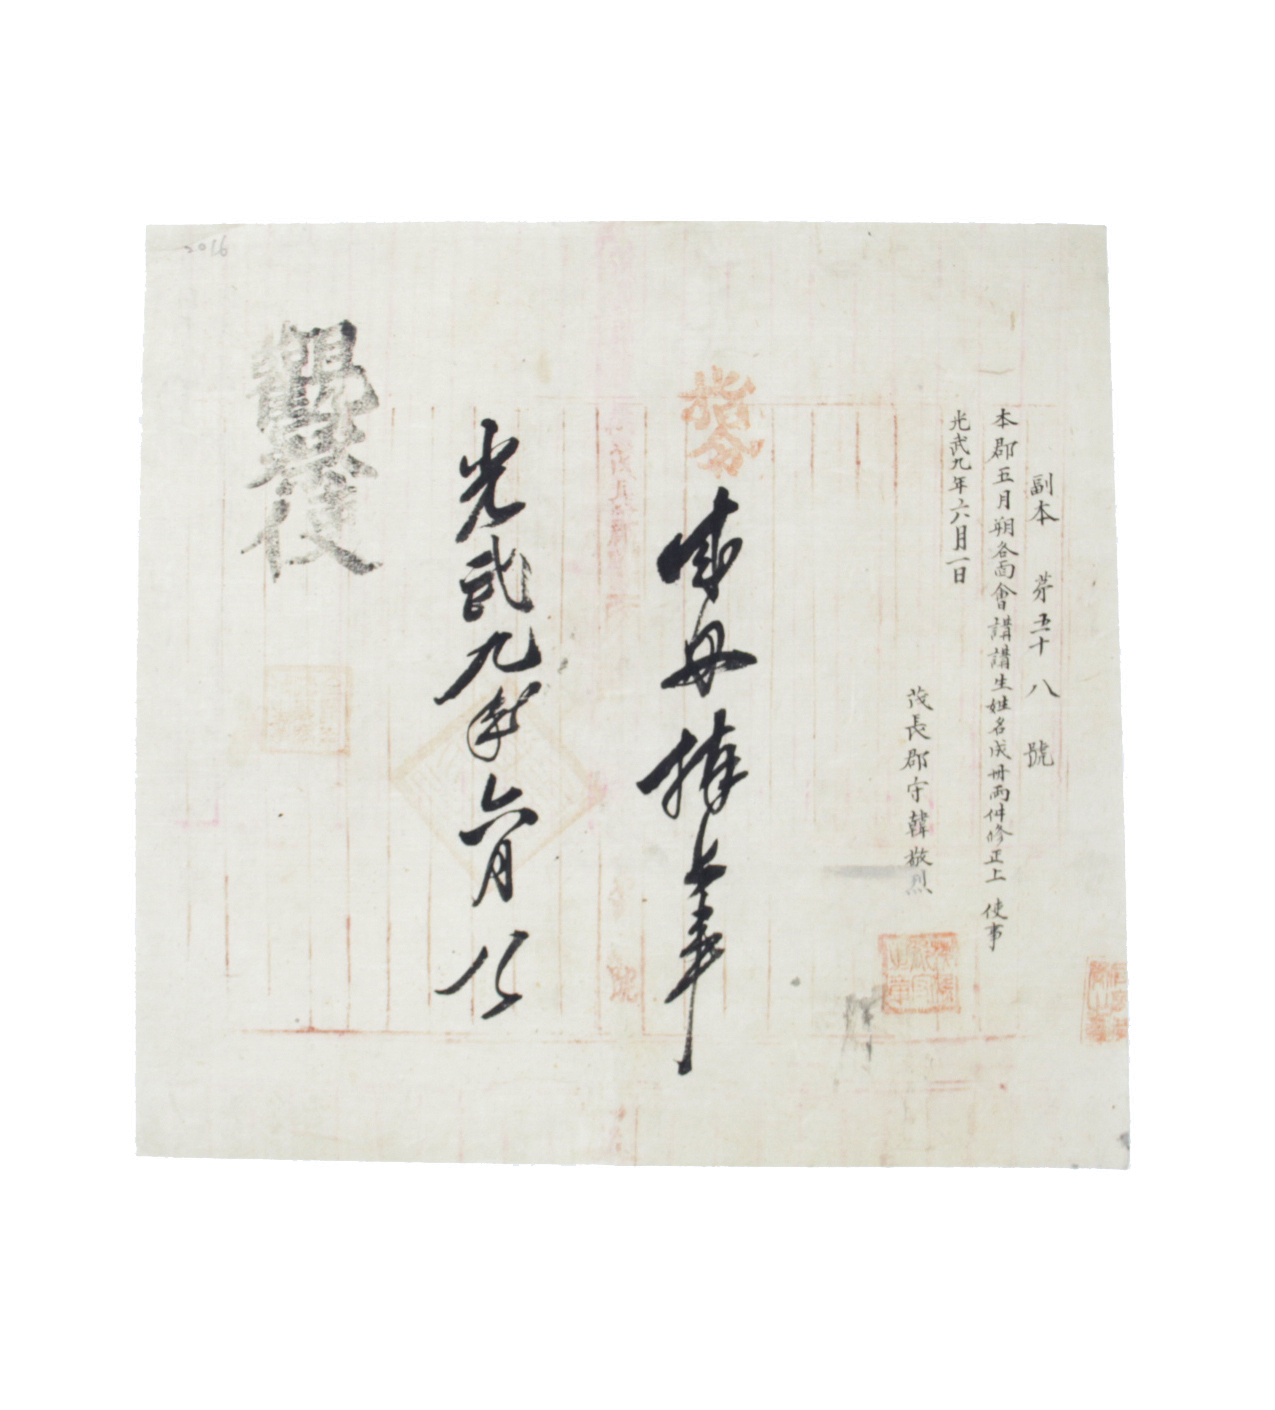 副本 第五十八號
本郡五月朔各面會講講生姓名成冊兩件修正上 使事
光武九年六月一日
茂長郡守韓敬烈
指令
成冊捧上事
光武九年六月
觀察使
2016